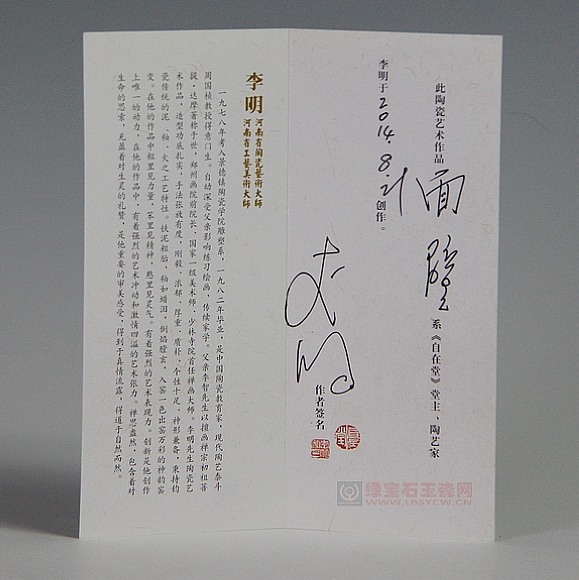 此陶瓷艺术作品 面壁 系《自在堂》堂主、陶艺家
李明于2014.8.21创作。
作者签名
李明
李明
河南省陶瓷艺術大师
河南省工藝美術大师
一九七八年考入景德镇陶瓷学院雕塑系，一九八二年毕业，是中国陶瓷教育家，现代陶艺泰斗
周国桢教授得意门生。自幼深受父亲影响练习绘画，传续家学。父亲李智先生以擅画禅宗初祖菩
提·达摩著称于世，郑州画院前院长、国家一级美术师、少林寺院首任禅画大师。李明先生陶瓷艺
术作品，造型动感扎实，手法张放有度，刚毅、浓郁、厚重、质朴、个性十足，神形兼备，秉持钧
瓷传统的泥、釉、火之工艺特性，铁泥粗胎，釉如蜡泪，倒焰膛玄，入窑一色出窑万彩的神韵窑
变。在他的作品中粗里见力量，笨里见精神，憨里见灵气。有着强烈的艺术表现力。创新是他创作
上唯一的动力。在他的作品中，有着强烈的艺术冲动和激情四溢的艺术张力。禅思盎然，包含着对
生命的思索，充盈着对生灵的礼赞，是他重要的审美感受，得到于真情流露，得道于自然而然。
绿宝石玉瓷网
WWW.LBSYCW.CN